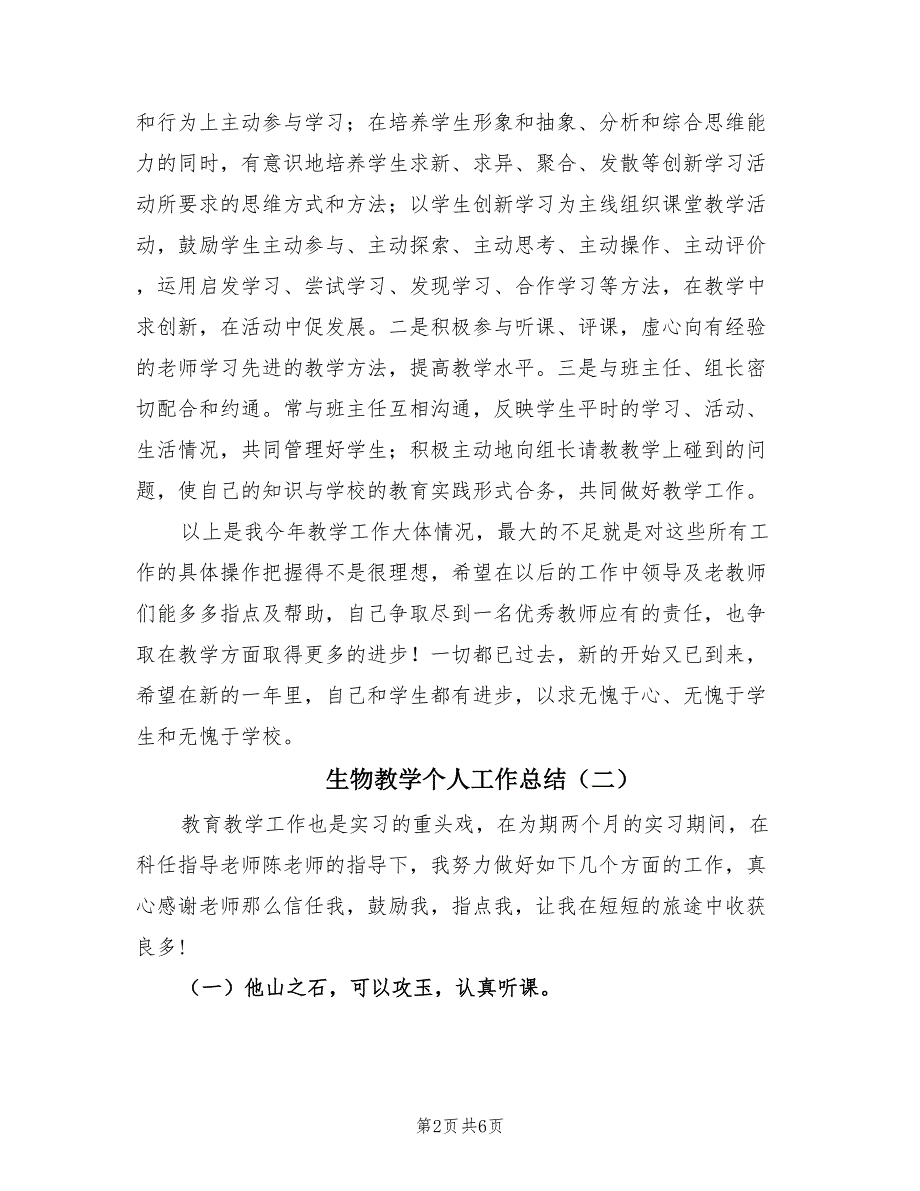 和行为上主动参与学习；在培养学生形象和抽象、分析和综合思维能
力的同时，有意识地培养学生求新、求异、聚合、发散等创新学习活
动所要求的思维方式和方法；以学生创新学习为主线组织课堂教学活
动，鼓励学生主动参与、主动探索、主动思考、主动操作、主动评价
，运用启发学习、尝试学习、发现学习、合作学习等方法，在教学中
求创新，在活动中促发展。二是积极参与听课、评课，虚心向有经验
的老师学习先进的教学方法，提高教学水平。三是与班主任、组长密
切配合和约通。常与班主任互相沟通，反映学生平时的学习、活动、
生活情况，共同管理好学生；积极主动地向组长请教教学上碰到的问
题，使自己的知识与学校的教育实践形式合务，共同做好教学工作。
以上是我今年教学工作大体情况，最大的不足就是对这些所有工
作的具体操作把握得不是很理想，希望在以后的工作中领导及老教师
们能多多指点及帮助，自己争取尽到一名优秀教师应有的责任，也争
取在教学方面取得更多的进步！一切都已过去，新的开始又已到来，
希望在新的一年里，自己和学生都有进步，以求无愧于心、无愧于学
生和无愧于学校。
生物教学个人工作总结（二）
教育教学工作也是实习的重头戏，在为期两个月的实习期间，在
科任指导老师陈老师的指导下，我努力做好如下几个方面的工作，真
心感谢老师那么信任我，鼓励我，指点我，让我在短短的旅途中收获
良多！
（一）他山之石，可以攻玉，认真听课。
第2页 共6页